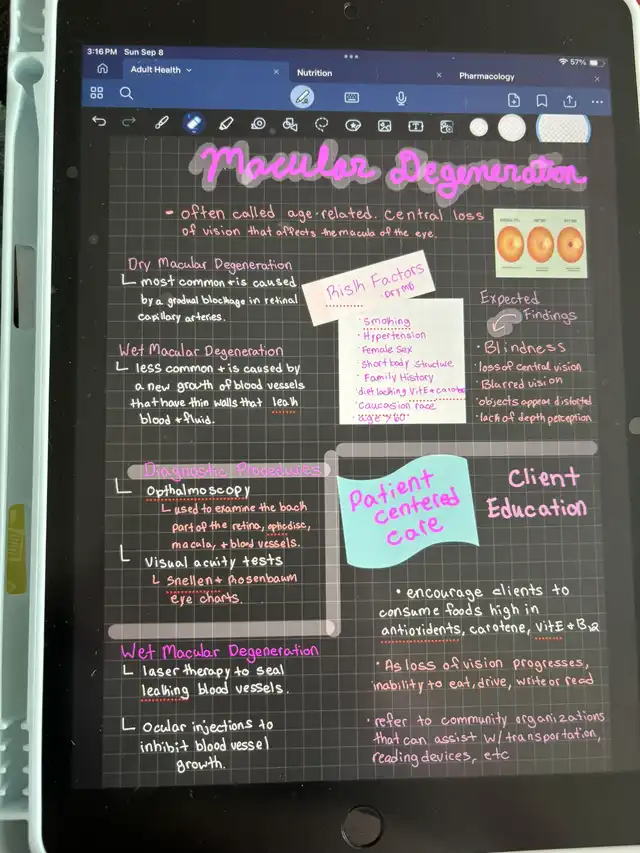 3:16 PM Sun Sep 8
57%
Adult Health
Nutrition
Pharmacology
Macular Degeneration
- often called age-related. Central loss
of vision that affects the macula of the eye.
Dry Macular Degeneration
most common + is caused
by a gradual blockage in retinal
capillary arteries.
Wet Macular Degeneration
less common + is caused by
a new growth of blood vessels
that have thin walls that leak
blood + fluid.
Risk Factors
• DRY MD
• Smoking
• Hypertension
• Female Sex
• Short body structure
• Family History
• diet lacking Vit E + carotene
• Caucasion race
• age > 60
Expected
Findings
• Blindness
• loss of central vision
• Blurred vision
• objects appear distorted
• lack of depth perception
Diagnostic Procedures
Opthalmoscopy
used to examine the back
part of the retina, optic disc,
macula, + blood vessels.
Visual acuity tests
Snellen + Rosenbaum
eye charts.
Wet Macular Degeneration
laser therapy to seal
leaking blood vessels.
Ocular injections to
inhibit blood vessel
growth.
Patient
centered
care
Client
Education
• encourage clients to
consume foods high in
antioxidents, carotene, Vit E + B12
• As loss of vision progresses,
inability to eat, drive, write or read
• refer to community organizations
that can assist w/ transportation,
reading devices, etc